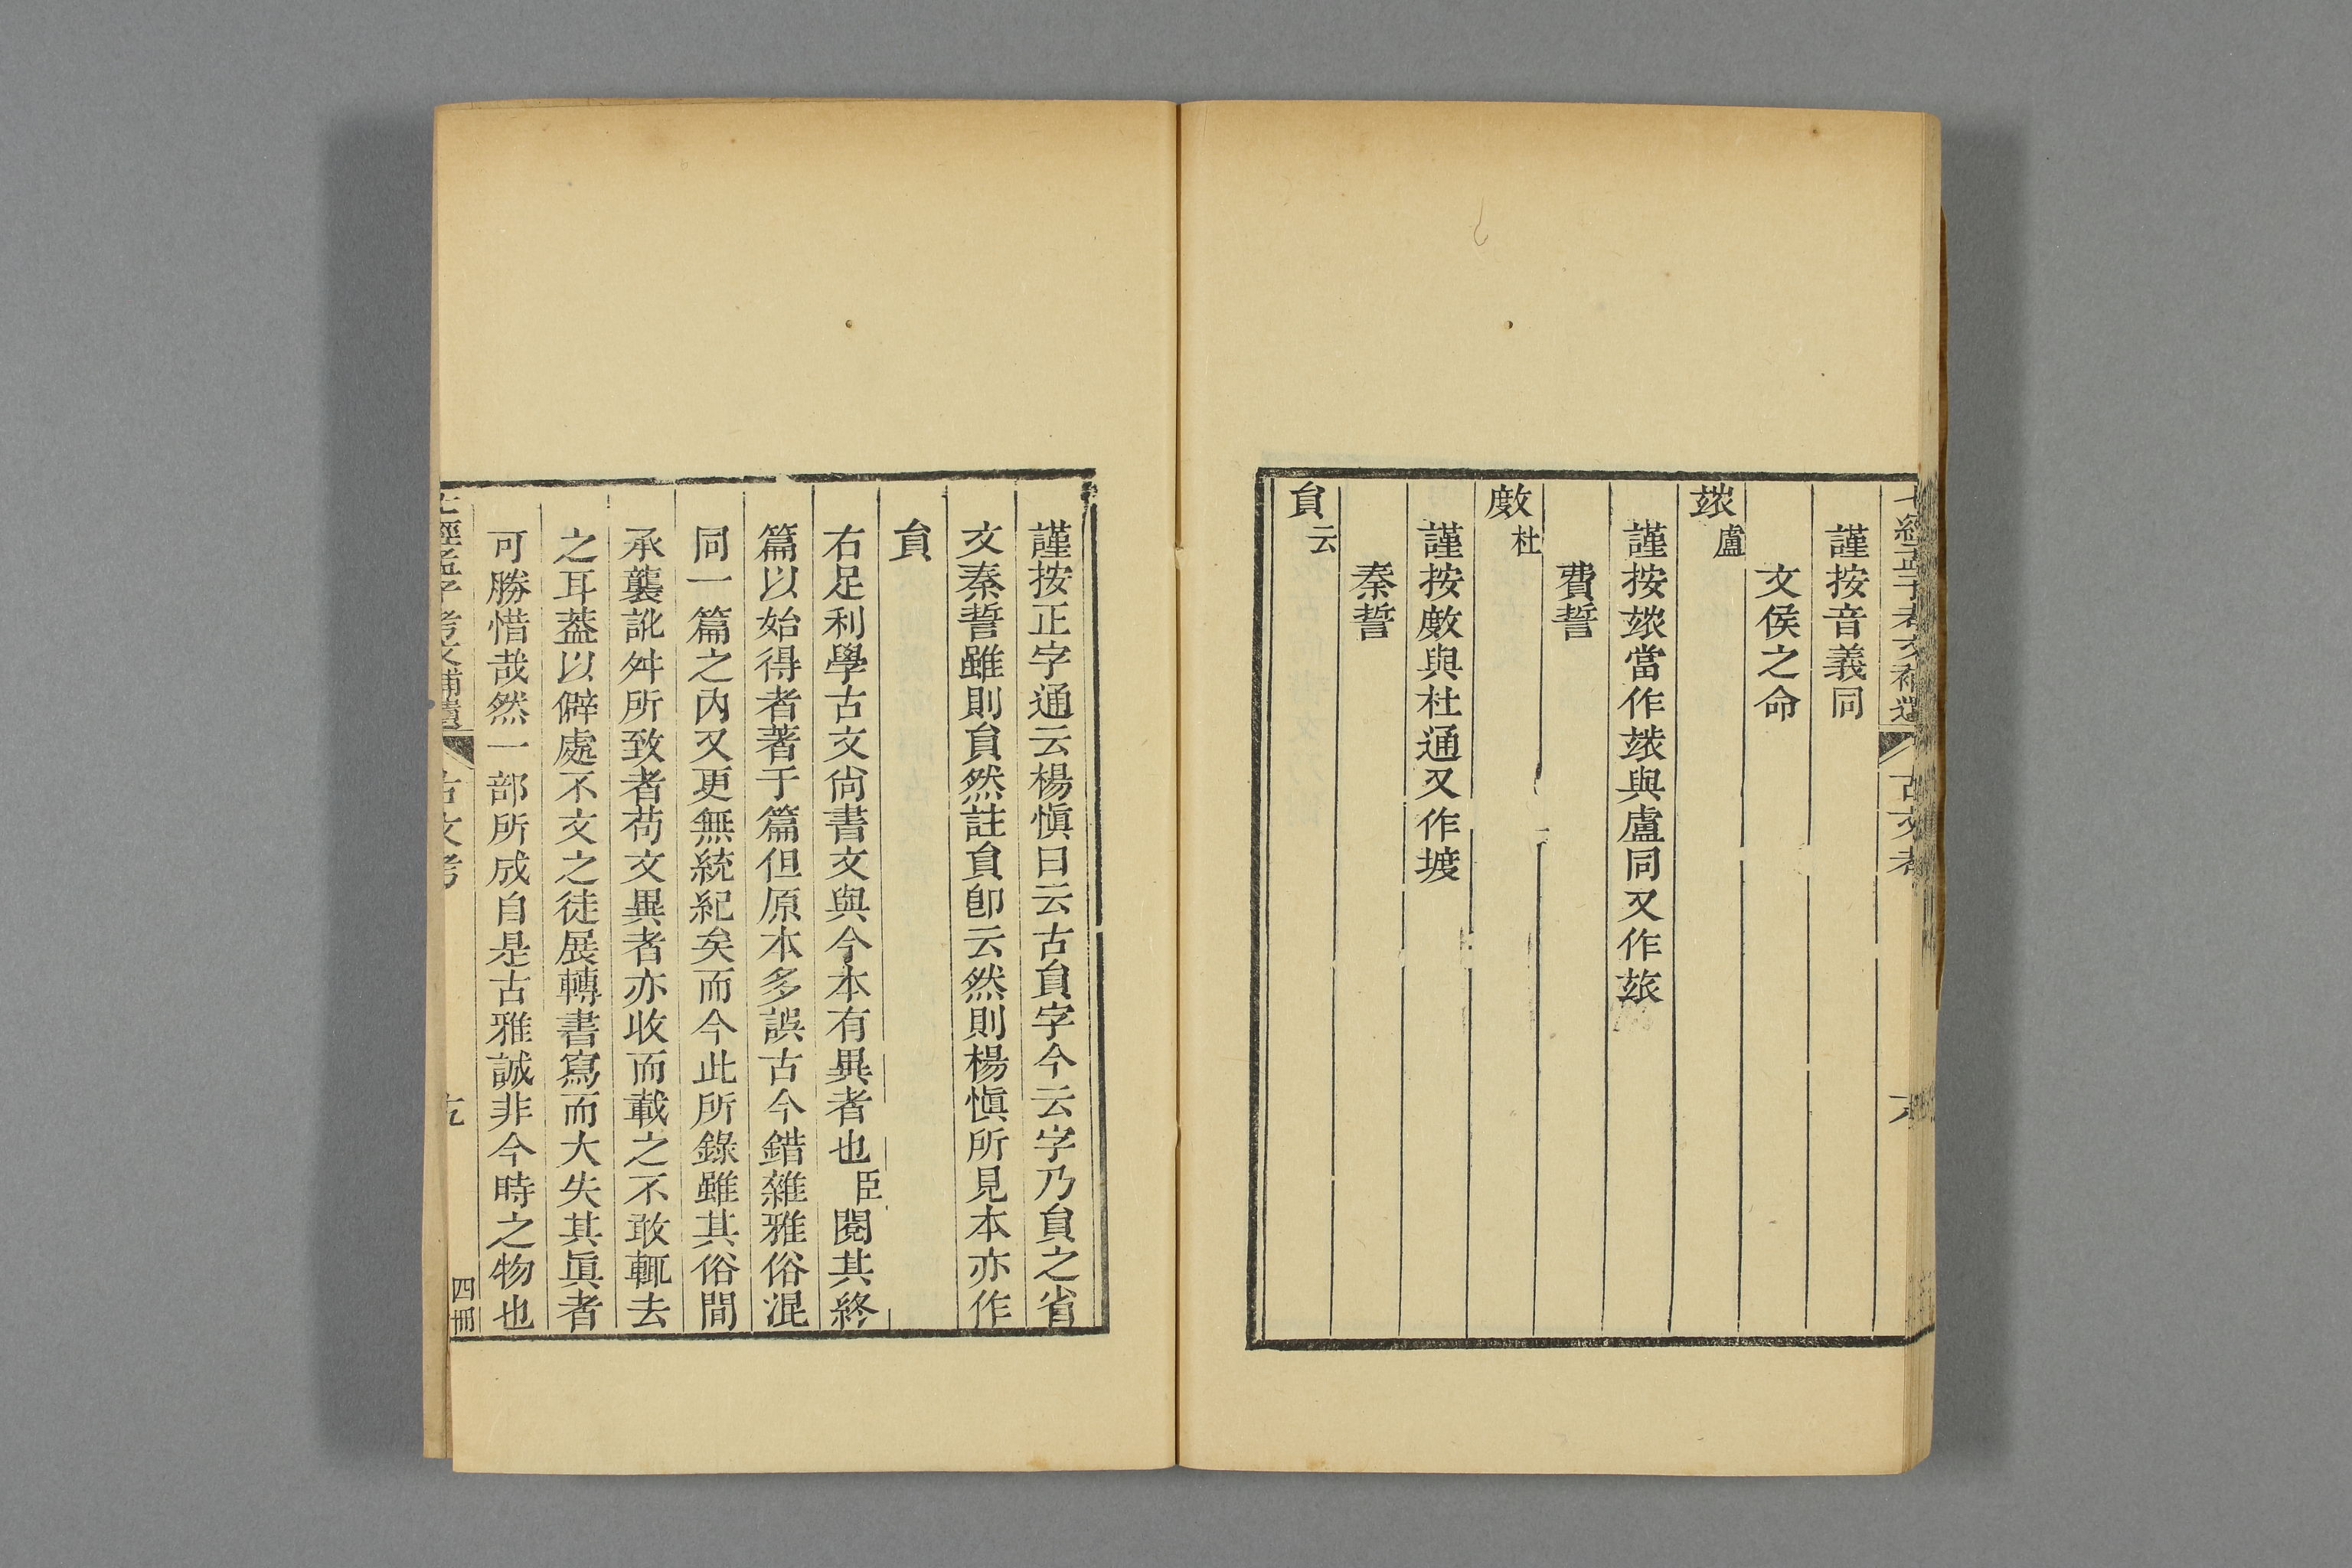 七經孟子考文補遺 古文考
謹按音義同
文侯之命
㫊盧
謹按㫊當作玈與盧同又作旅
費誓
敷杜
謹按敷與杜通又作㙷
秦誓
貟云
謹按正字通云楊愼曰云古貟字今云字乃貟之省
文秦誓雖則貟然註貟卽云然則楊愼所見本亦作
貟
右足利學古文尙書文與今本有異者也臣閱其終
篇以始得者著于篇但原本多誤古今錯雜雅俗混
同一篇之內又更無統紀矣而今此所錄雖其俗間
承襲訛舛所致者苟文異者亦收而載之不敢輒去
之耳葢以僻處不文之徒展轉書寫而大失其眞者
可勝惜哉然一部所成自是古雅誠非今時之物也
七經孟子考文補遺 古文考 四冊